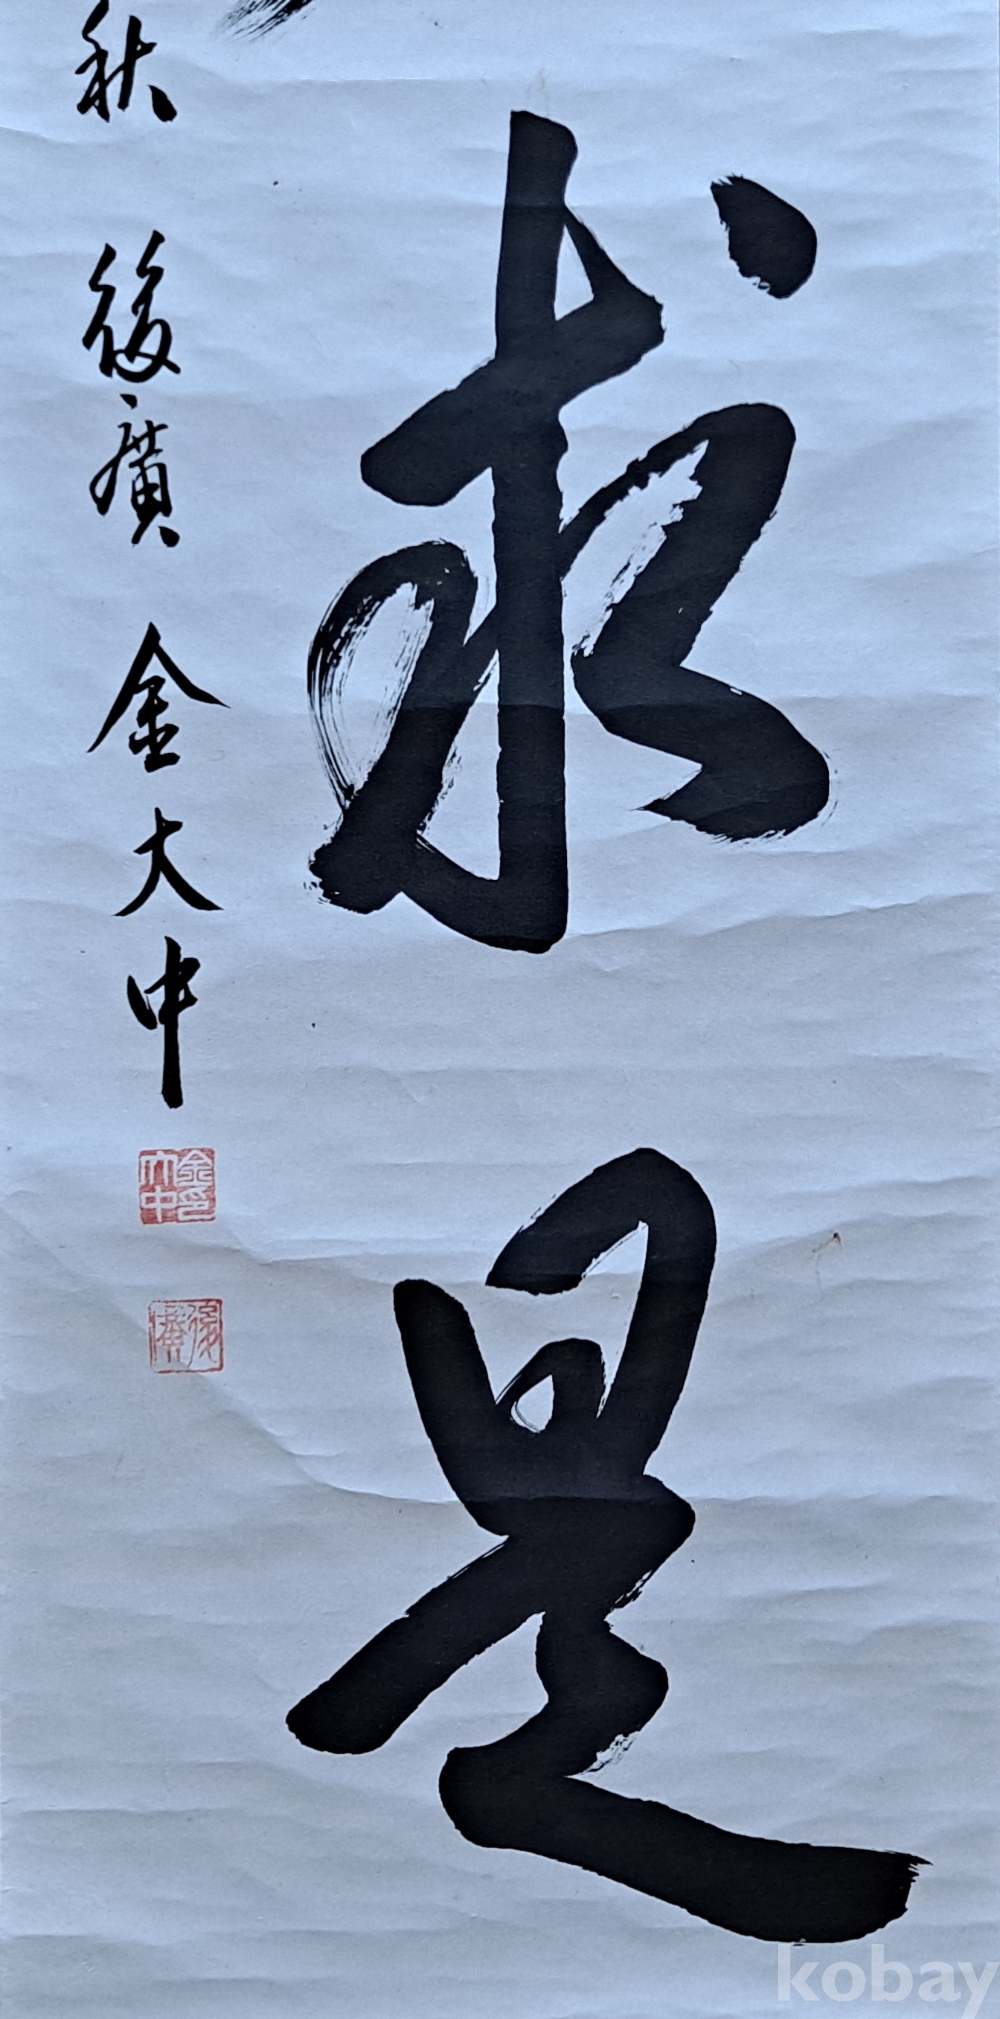 求是
秋 後廣 金大中
金印大中
後廣
kobay